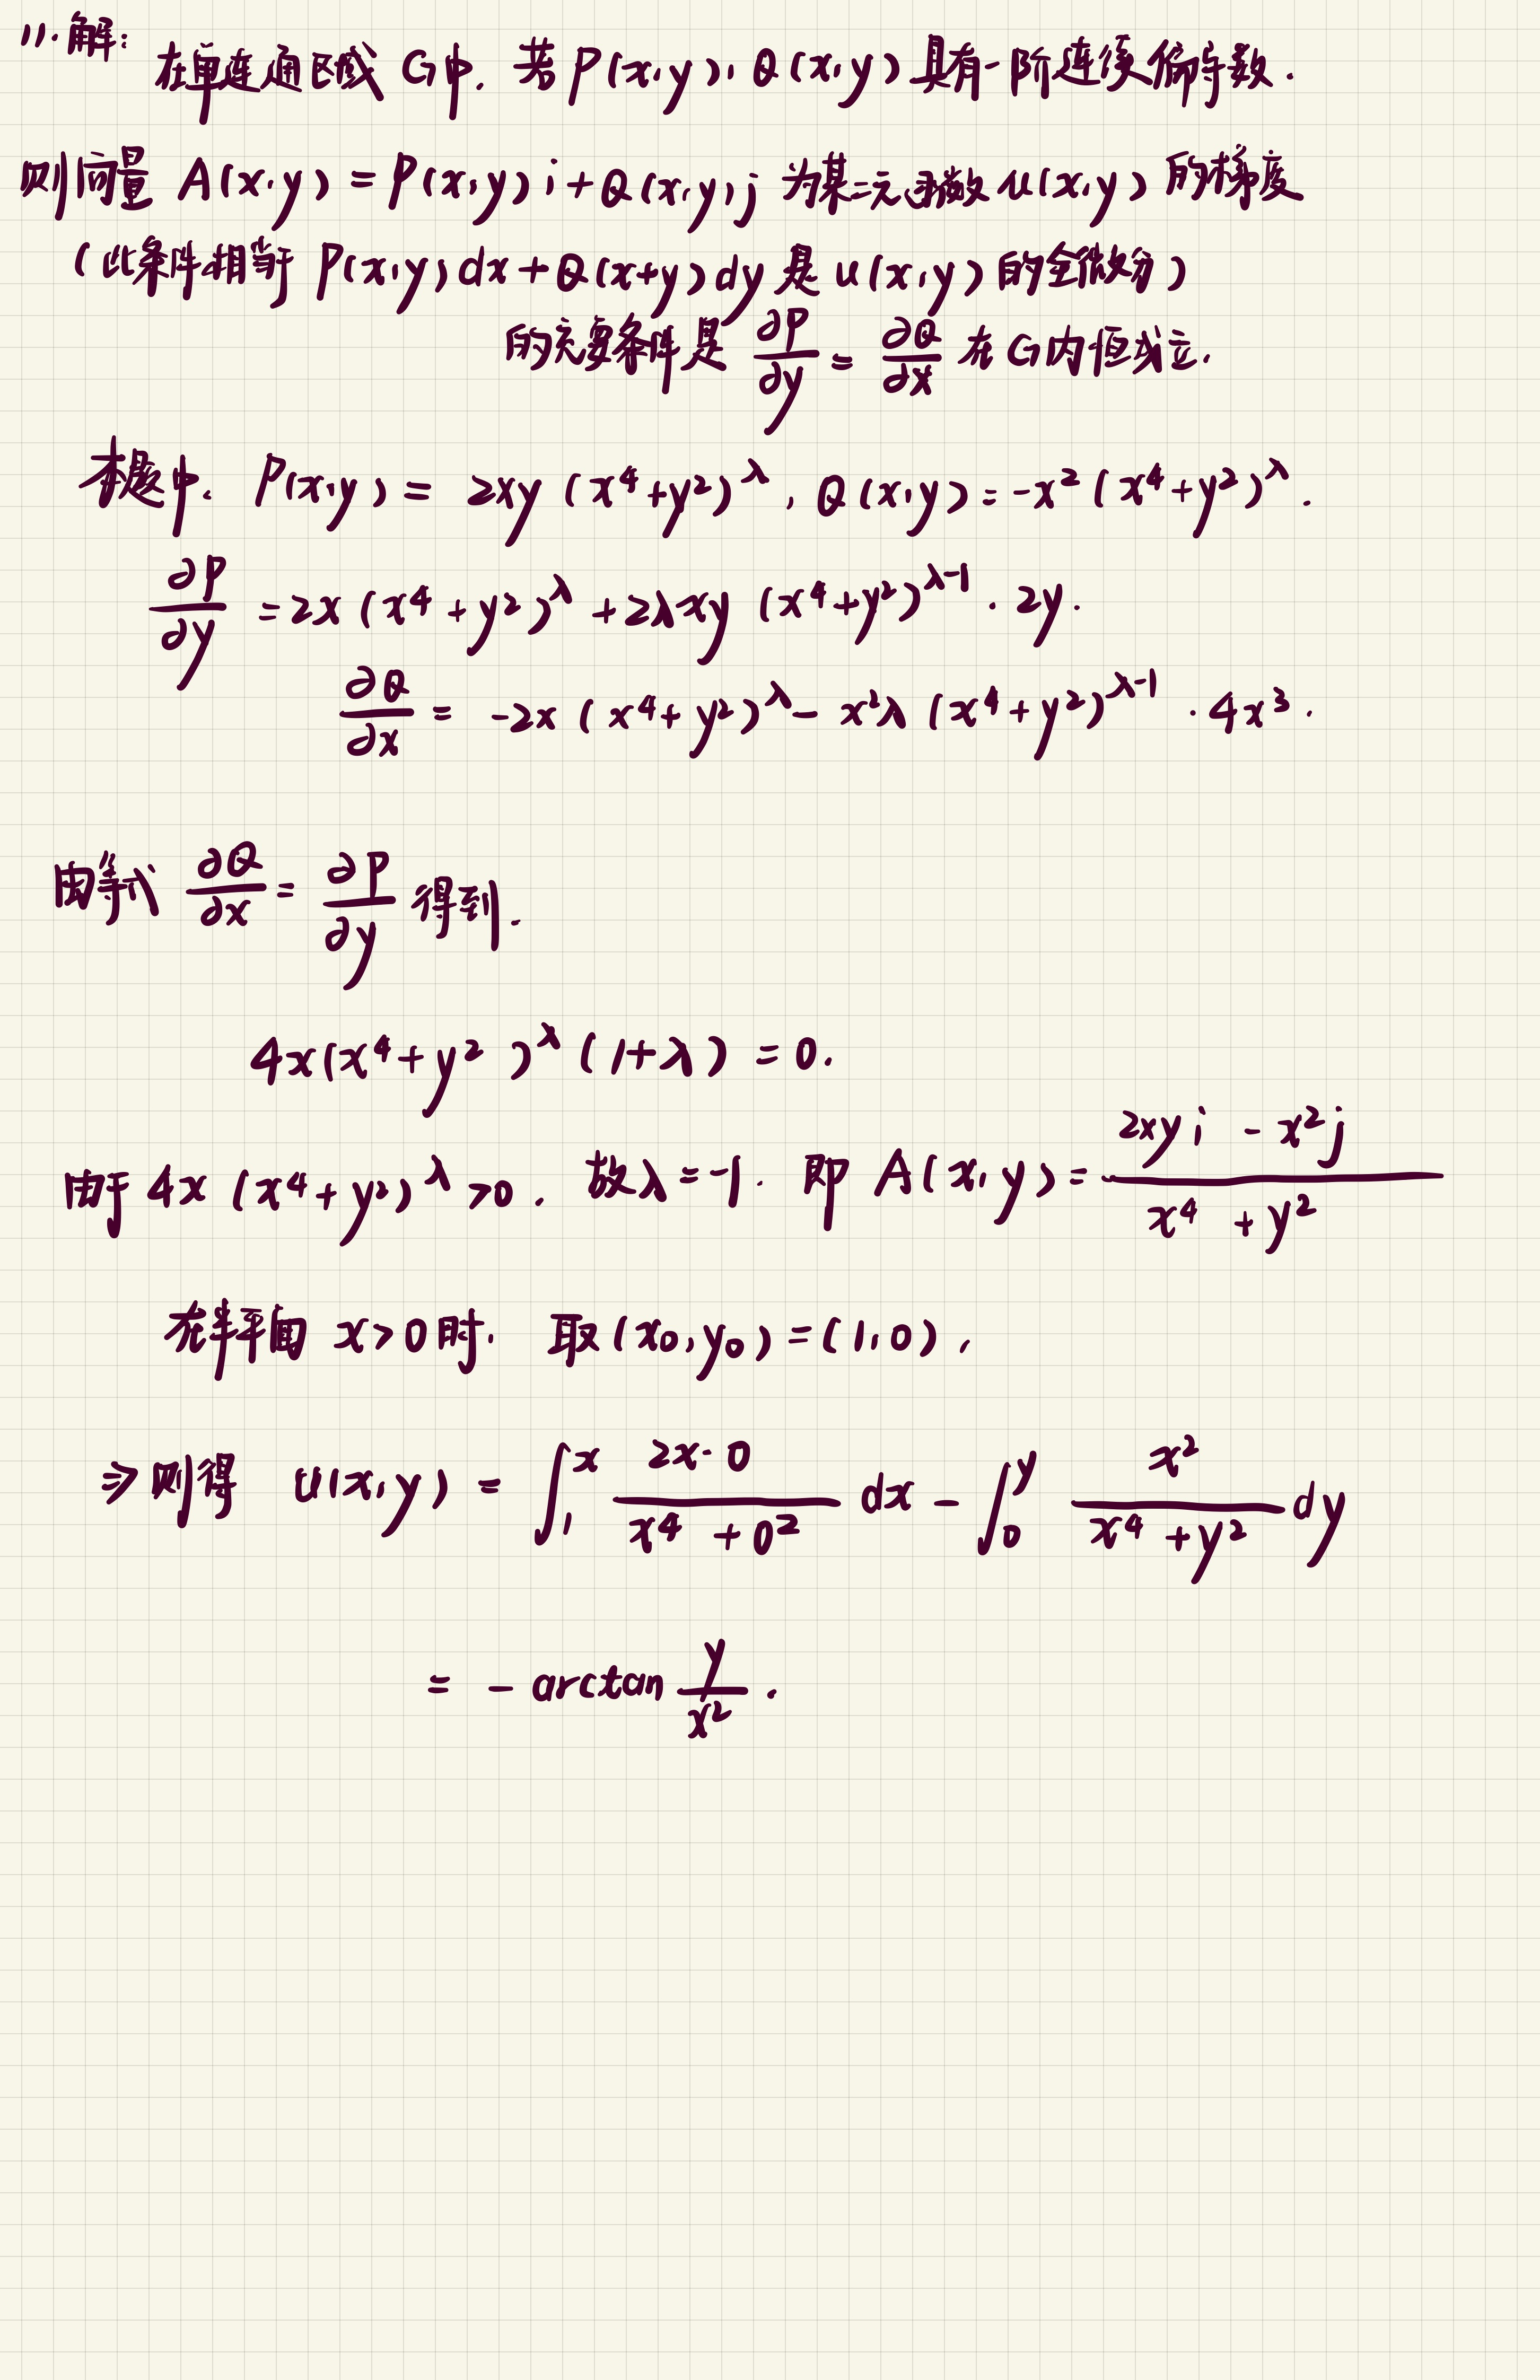 11. 解:
在单连通区域 G中. 若 P(x,y), Q(x,y) 具有一阶连续偏导数.
则向量 A(x,y) = P(x,y) i + Q(x,y) j 为某二元函数 u(x,y) 的梯度
(此条件相当于 P(x,y) dx + Q(x+y) dy 是 u(x,y) 的全微分)
的充要条件是 ∂P/∂y = ∂Q/∂x 在 G内恒成立.
本题中. P(x,y) = 2xy (x⁴+y²)^λ, Q(x,y) = -x² (x⁴+y²)^λ.
∂P/∂y = 2x (x⁴+y²)^λ + 2λxy (x⁴+y²)^(λ-1) · 2y.
∂Q/∂x = -2x (x⁴+y²)^λ - x²λ (x⁴+y²)^(λ-1) · 4x³.
由等式 ∂Q/∂x = ∂P/∂y 得到.
4x(x⁴+y²)^λ (1+λ) = 0.
由于 4x (x⁴+y²)^λ >0. 故λ=-1. 即 A(x,y) = (2xy i - x² j)/(x⁴+y²)
在半平面 x>0时. 取(x₀,y₀)=(1,0),
⇒ 则得 u(x,y) = ∫₁^x (2x·0)/(x⁴+0²) dx - ∫₀^y x²/(x⁴+y²) dy
= - arctan y/x² .